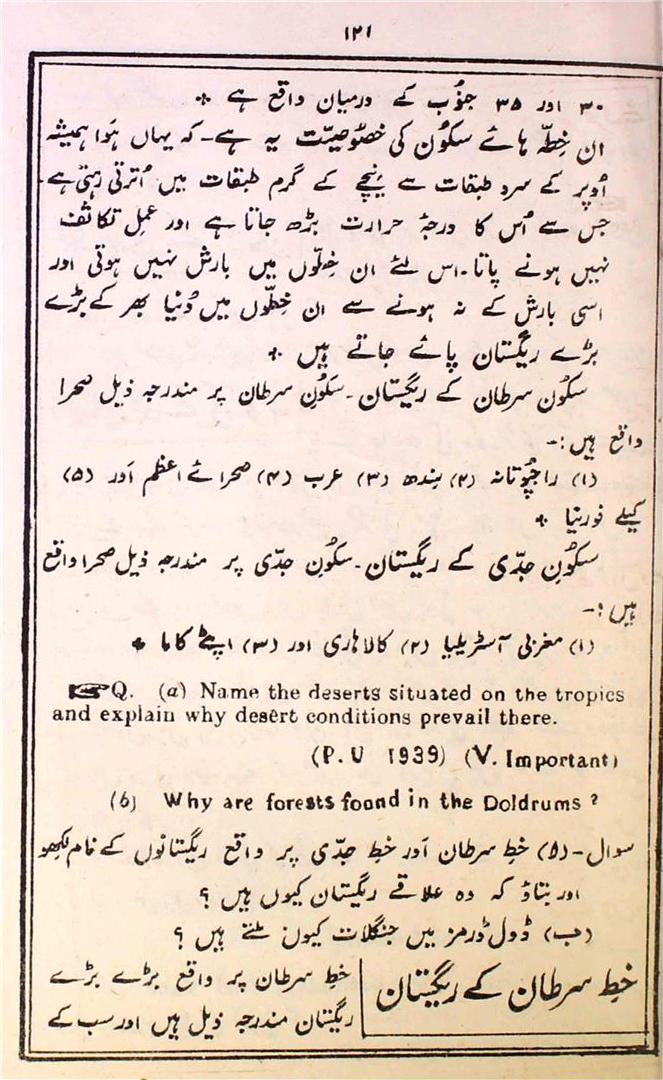 ۱۲۱
۳۰ اور ۳۵ جنُوب کے درمیان واقع ہے +
ان خِطّہ ہائے سکُون کی خصُوصیّت یہ ہے۔ کہ یہاں ہَوا ہمیشہ
اُوپر کے سرد طبقات سے نیچے کے گرم طبقات میں اُترتی رہتی ہے۔
جس سے اُس کا درجۂ حرارت بڑھ جاتا ہے اور عملِ تکاثف
نہیں ہونے پاتا۔ اس لئے ان خِطّوں میں بارش نہیں ہوتی اور
اسی بارش کے نہ ہونے سے ان خِطّوں میں دُنیا بھر کے بڑے
بڑے ریگستان پائے جاتے ہیں +
سکُون سرطان کے ریگستان۔ سکُونِ سرطان پر مندرجہ ذیل صحرا
واقع ہیں :۔
(۱) راجپُوتانہ (۲) سِندھ (۳) عرب (۴) صحرائے اعظم اَور (۵)
کیلے فورنیا +
سکُونِ جدّی کے ریگستان۔ سکُونِ جدّی پر مندرجہ ذیل صحرا واقع
ہیں :۔
(۱) مغربی آسٹریلیا (۲) کالاہاری اور (۳) ایٹے کاما +
☛Q. (a) Name the deserts situated on the tropics
and explain why desert conditions prevail there.
(P.U 1939) (V. Important)
(b) Why are forests foond in the Doldrums ?
سوال۔ (ا) خطِ سرطان اَور خطِ جدّی پر واقع ریگستانوں کے نام لکھو
اور بتاؤ کہ وہ علاقے ریگستان کیوں ہیں ؟
(ب) ڈول ڈرمز میں جنگلات کیوں ملتے ہیں ؟
خطِ سرطان کے ریگستان
خطِ سرطان پر واقع بڑے بڑے
ریگستان مندرجہ ذیل ہیں اور سب کے